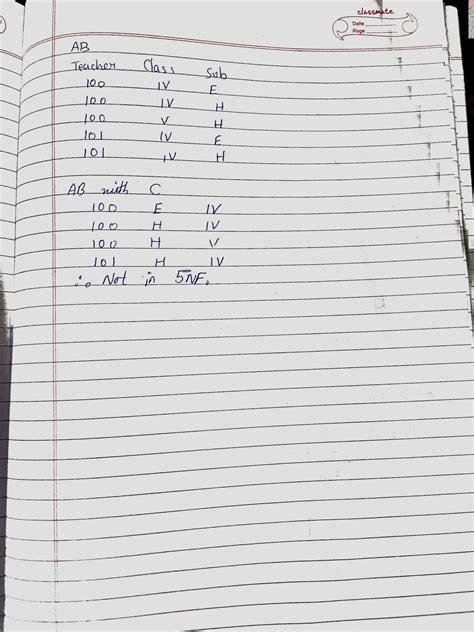 classmate
Date
Page
AB
Teacher Class Sub
100 IV E
100 IV H
100 V H
101 IV E
101 IV H
AB with C
100 E IV
100 H IV
100 H V
101 H IV
∴ Not in 5NF.